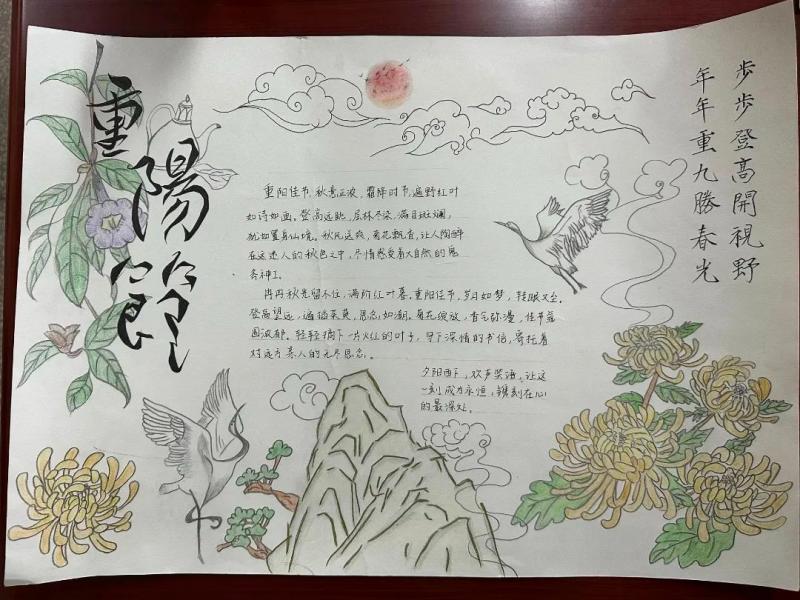 重陽節
步步登高開視野
年年重九勝春光
重阳佳节,秋意正浓,霜降时节,遍野红叶
如诗如画。登高远眺,层林尽染,满目斑斓,
犹如置身仙境。秋风送爽,菊花飘香,让人陶醉
在这迷人的秋色之中,尽情感受着大自然的鬼
斧神工。
冉冉秋光留不住,满阶红叶暮。重阳佳节,岁月如梦,转眼又至。
登高望远,遍插茱萸,思念如潮。菊花绽放,香气弥漫,佳节氛
围浓郁。轻轻摘下一片火红的叶子,写下深情的书信,寄托着
对远方亲人的无尽思念。
夕阳西下,欢声笑语,让这
一刻成为永恒,镌刻在心
的最深处。